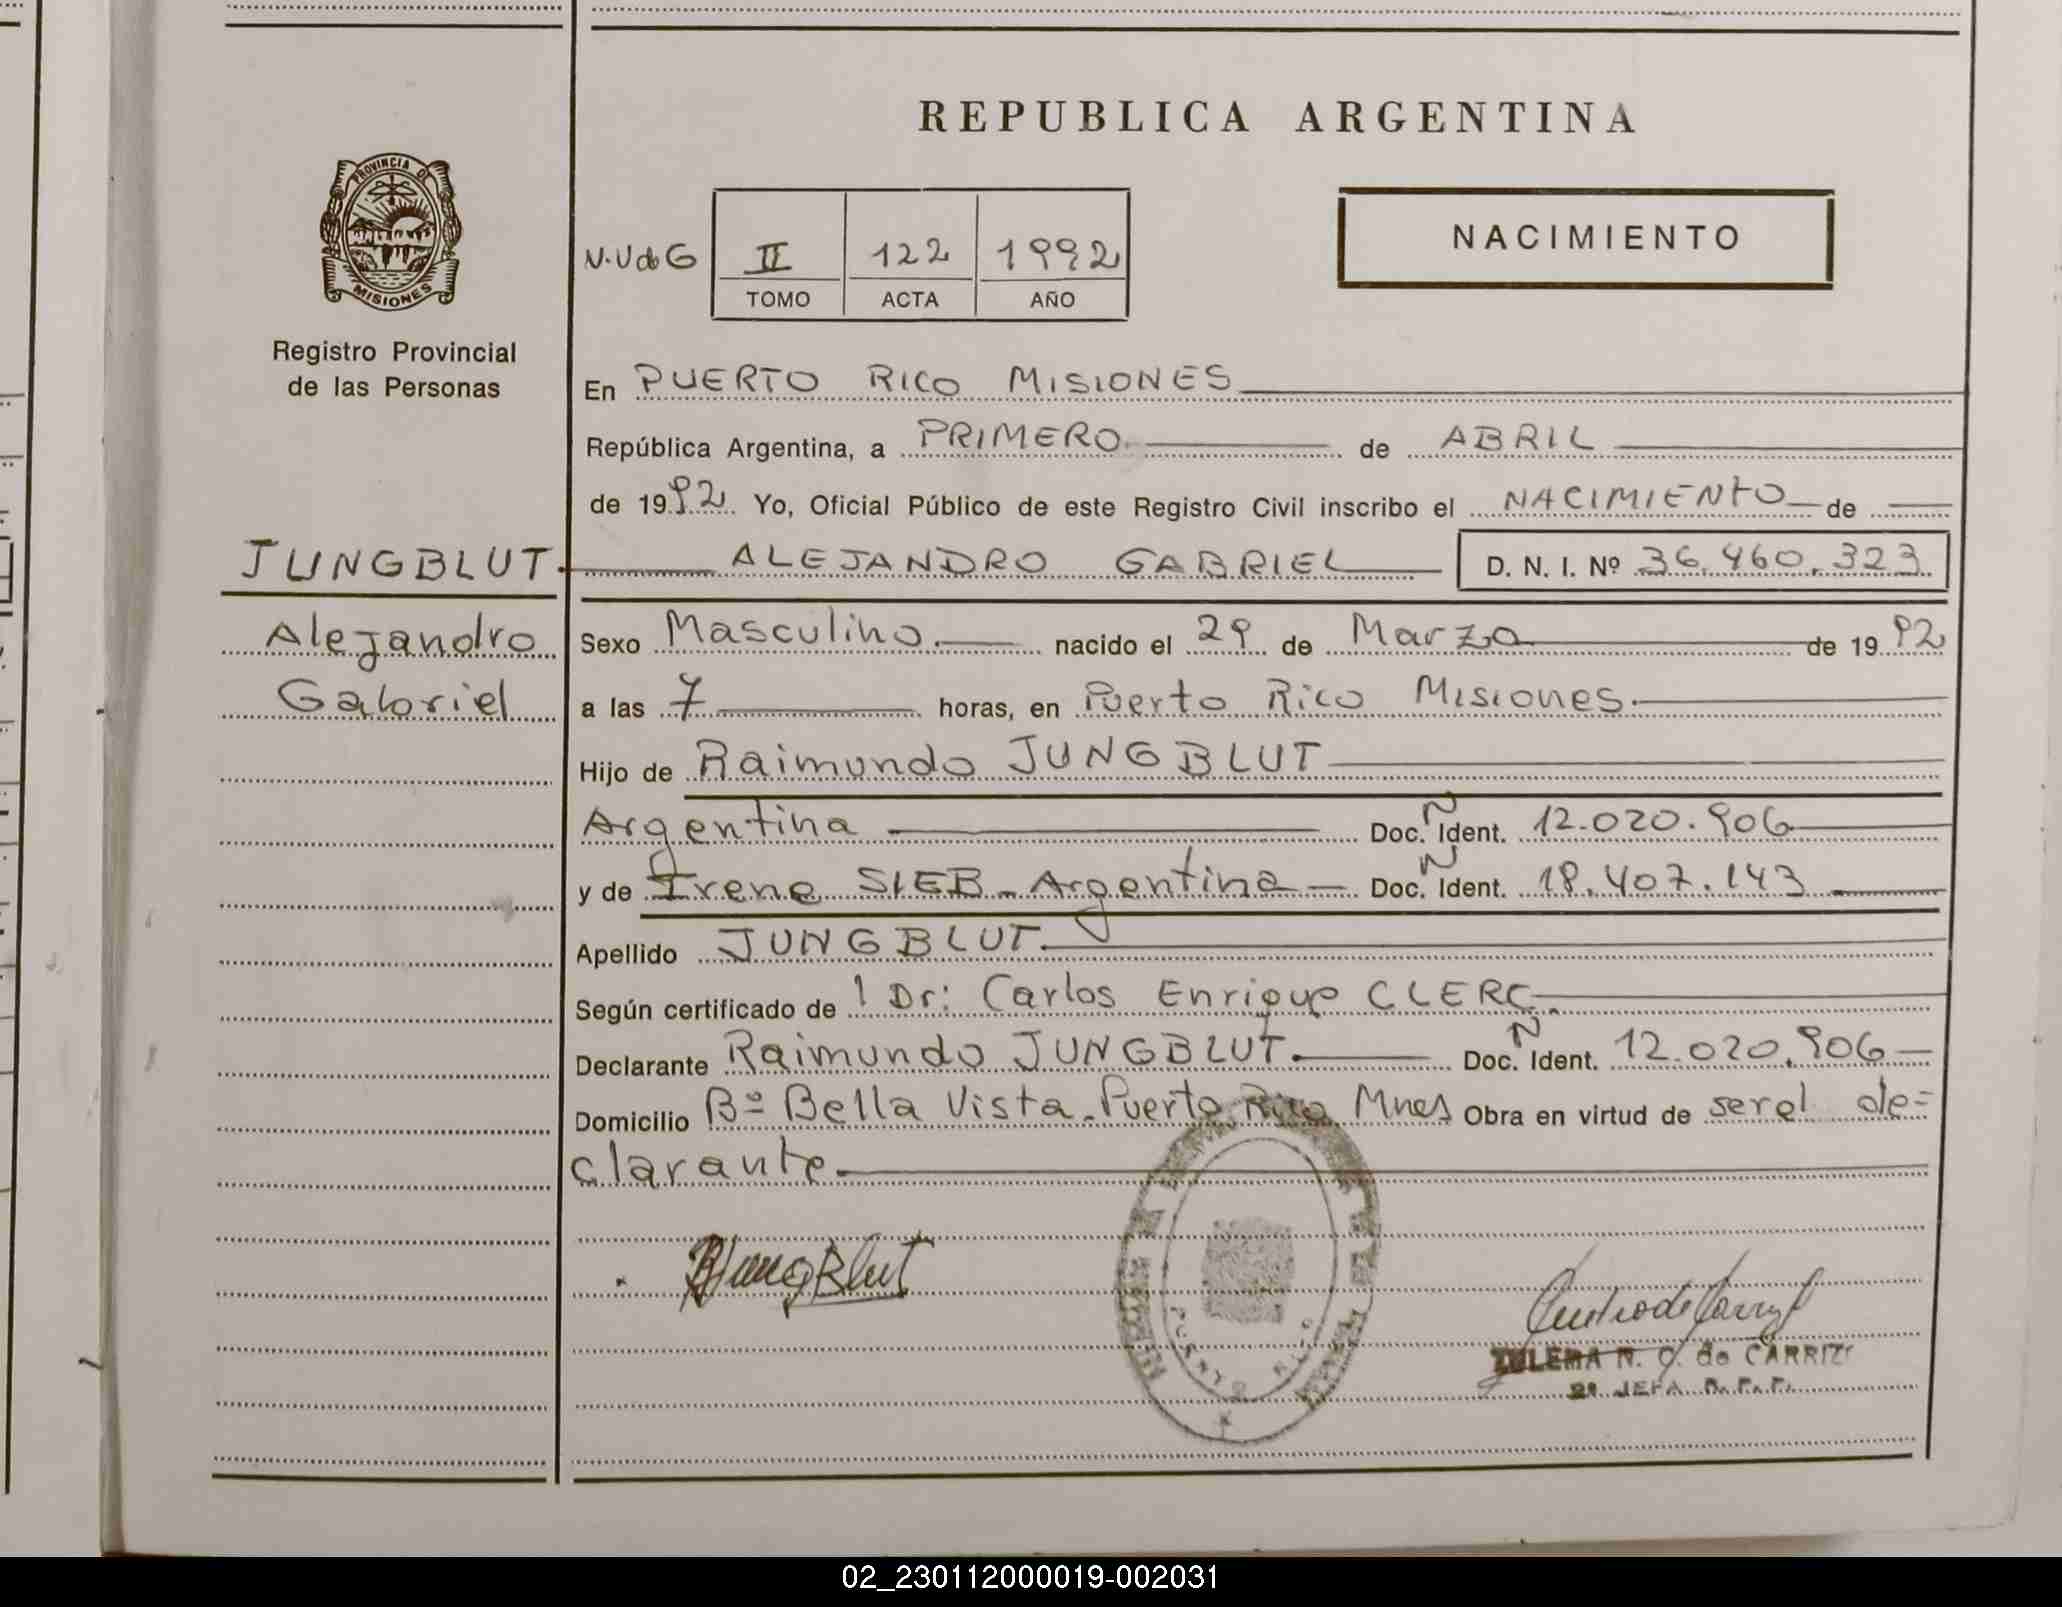 REPUBLICA ARGENTINA
PROVINCIA DE
MISIONES
Registro Provincial
de las Personas
N.U de G II 122 1992
TOMO ACTA AÑO
NACIMIENTO
En PUERTO RICO MISIONES
República Argentina, a PRIMERO de ABRIL
de 1992 Yo, Oficial Público de este Registro Civil inscribo el NACIMIENTO de
JUNGBLUT. ALEJANDRO GABRIEL D. N. I. Nº 36.460.323
Alejandro
Gabriel
Sexo Masculino. nacido el 29 de Marzo de 1992
a las 7 horas, en Puerto Rico Misiones.
Hijo de Raimundo JUNGBLUT
Argentina Doc. Ñ Ident. 12.020.906
y de Irene SIEB - Argentina Doc. Ñ Ident. 18.407.143
Apellido JUNGBLUT.
Según certificado de l Dr: Carlos Enrique CLERC.
Declarante Raimundo JUNGBLUT. Doc. Ñ Ident. 12.020.906
Domicilio Bº Bella Vista. Puerto Rico Mnes Obra en virtud de ser el de=
clarante.
JungBlut
PUERTO RICO
ZULEMA N. C. de CARRIZO
2º JEFA R.P.P.
02_230112000019-002031